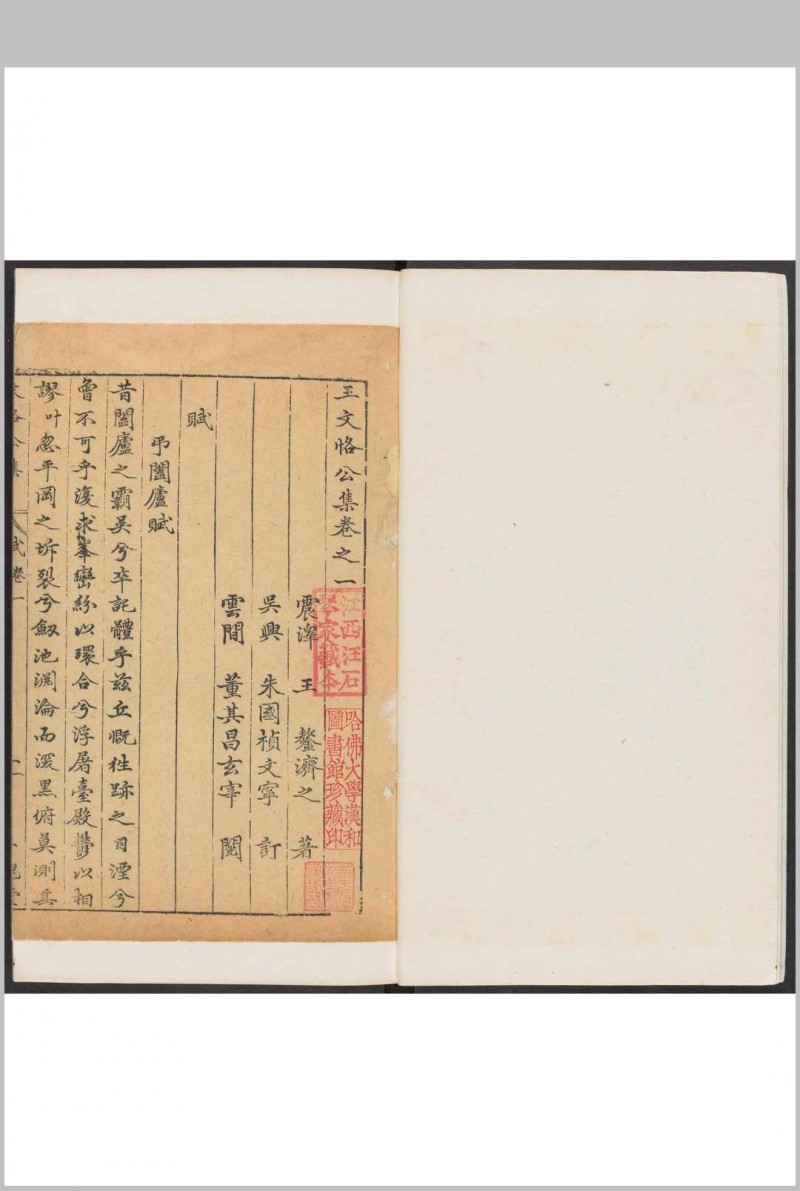 王文恪公集卷之一
震澤 王 鏊濟之 著
吳興 朱國楨文寧 訂
雲間 董其昌玄宰 閱
賦
弔闔廬賦
昔闔廬之霸吳兮卒託體乎兹丘慨徃跡之日湮兮
曾不可乎復求峯巒紛以環合兮浮屠臺殿鬱以相
謬叶忽平岡之坼裂兮劔池淵淪而深黑俯莫測其
賦卷一
江西汪石
琴家藏本
哈佛大學漢和
圖書館珍藏印